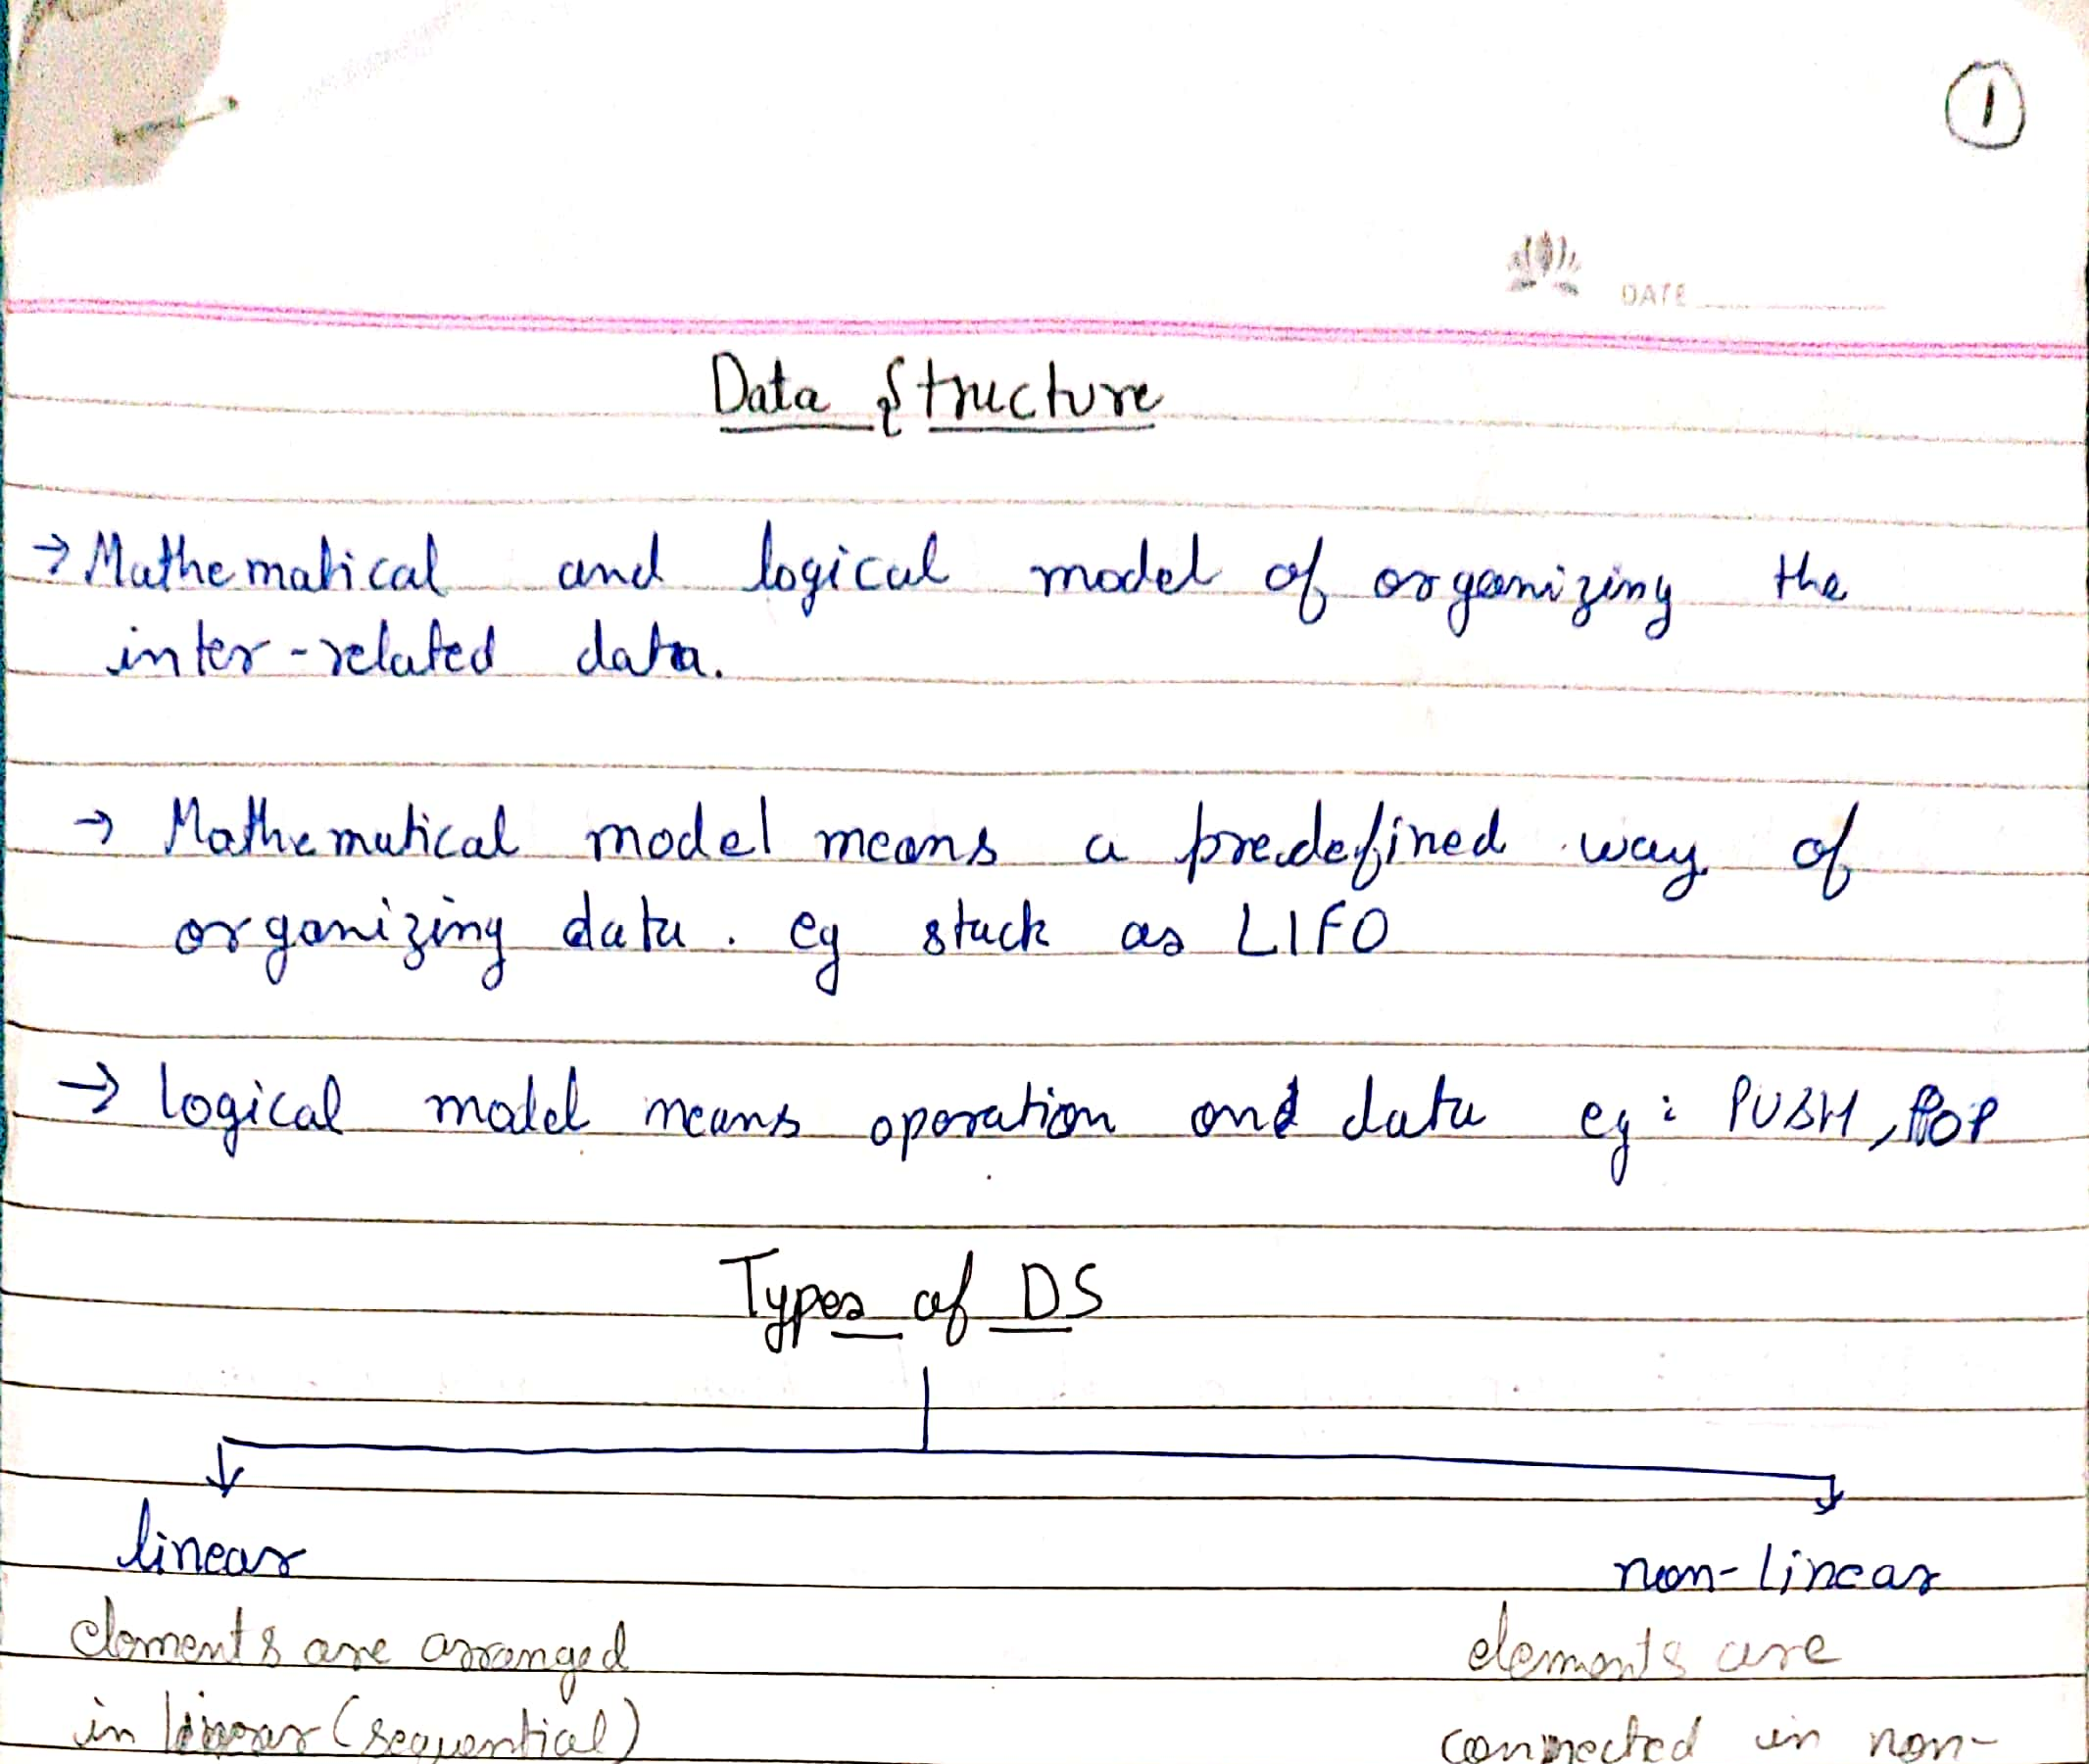 1
DATE
Data Structure
→ Mathematical and logical model of organizing the
inter-related data.
→ Mathematical model means a predefined way of
organizing data. eg stack as LIFO
→ logical model means operation and data eg: PUSH, POP
Types of DS
linear
non-linear
elements are arranged
elements are
in linear (sequential)
connected in non-